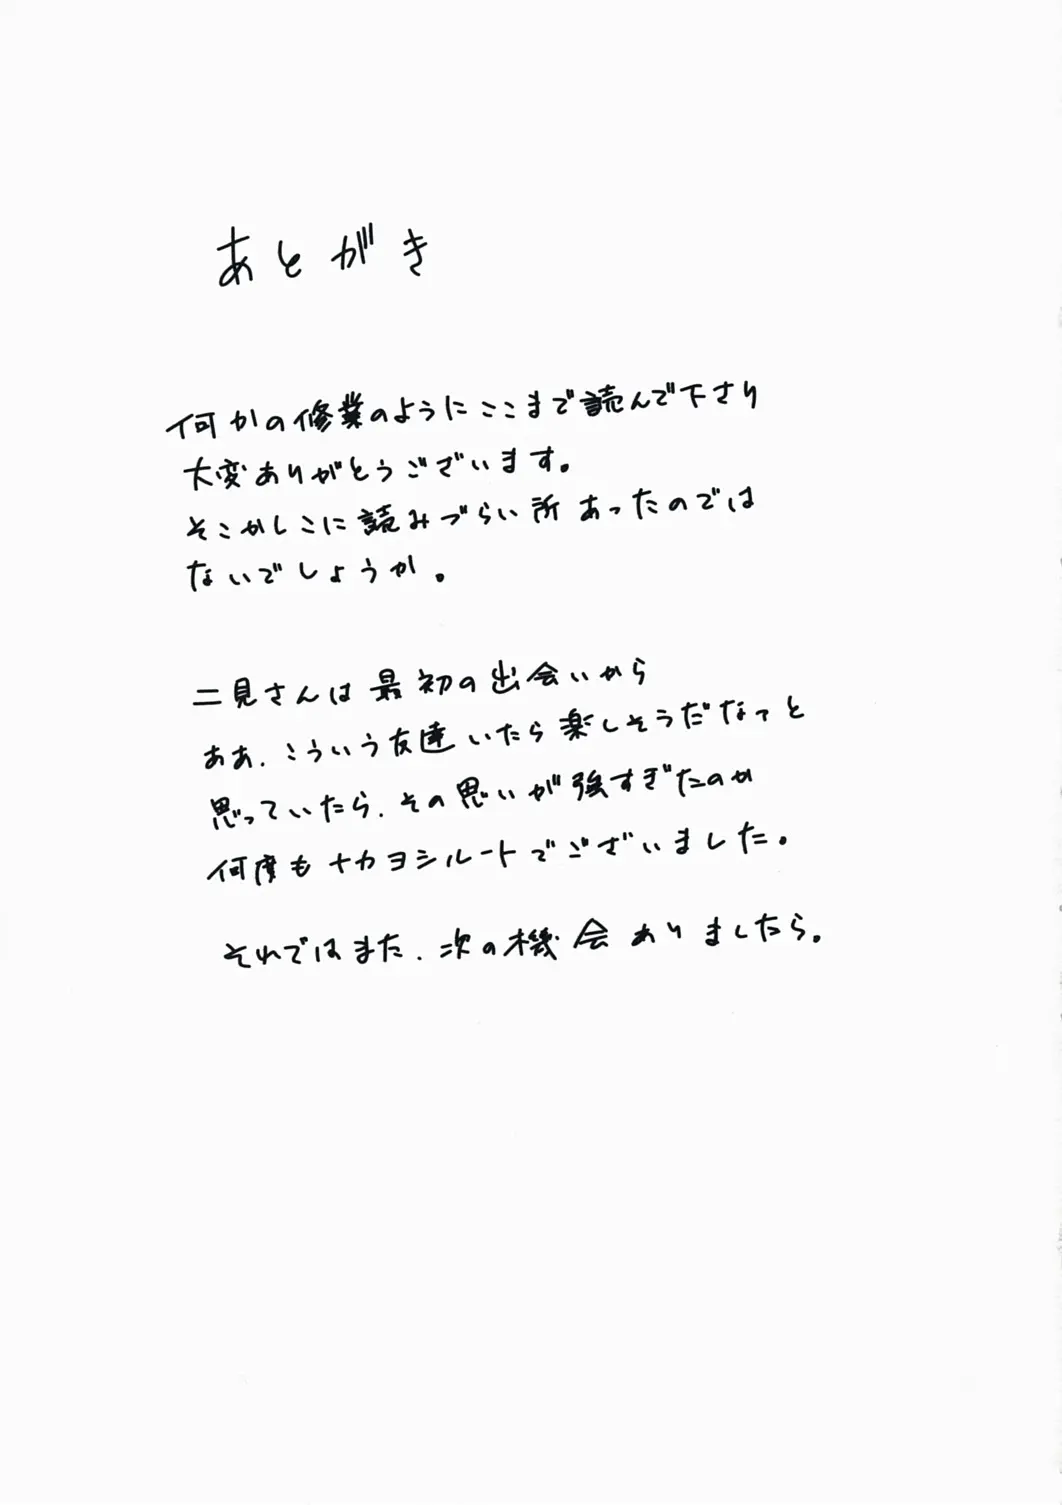 あとがき
何かの修業のようにここまで読んで下さり
大変ありがとうございます。
そこかしこに読みづらい所あったのでは
ないでしょうか。
二見さんは最初の出会いから
ああ、こういう友達いたら楽しそうだなって
思っていたら、その思いが強すぎたのか
何度もナカヨシルートでございました。
それではまた、次の機会ありましたら。